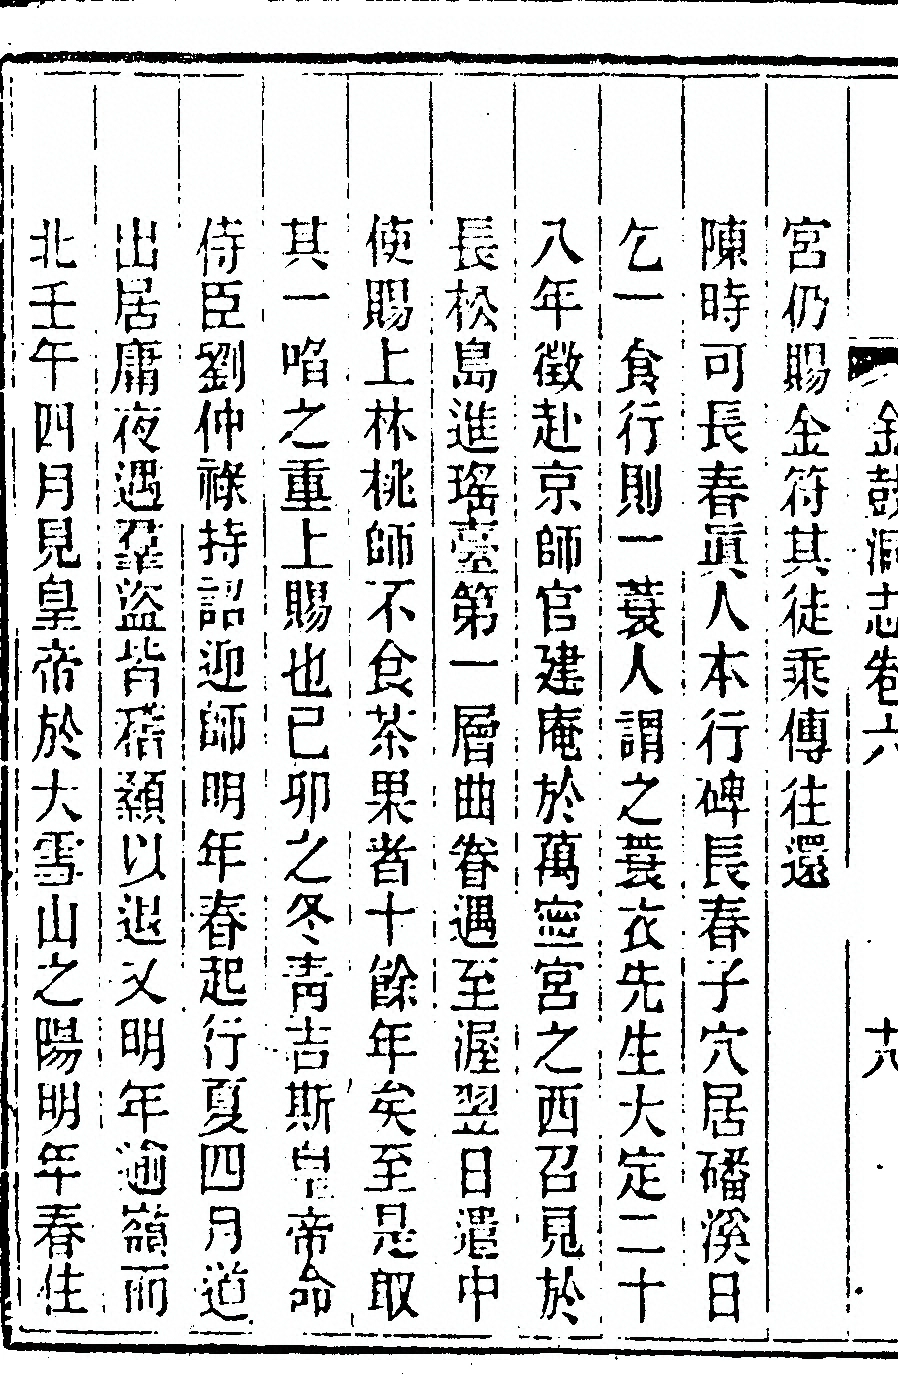 金鼓洞志卷六
十八
宮仍賜金符其徒乘傳往還
陳時可長春眞人本行碑長春子穴居磻溪日
乞一食行則一蓑人謂之蓑衣先生大定二十
八年徵赴京師官建庵於萬寧宮之西召見於
長松島進瑤臺第一層曲眷遇至渥翌日遣中
使賜上林桃師不食茶果者十餘年矣至是取
其一啗之重上賜也已卯之冬靑吉斯皇帝命
侍臣劉仲祿持詔迎師明年春起行夏四月道
出居庸夜遇羣盜皆稽顙以退又明年逾嶺而
北壬午四月見皇帝於大雪山之陽明年春住